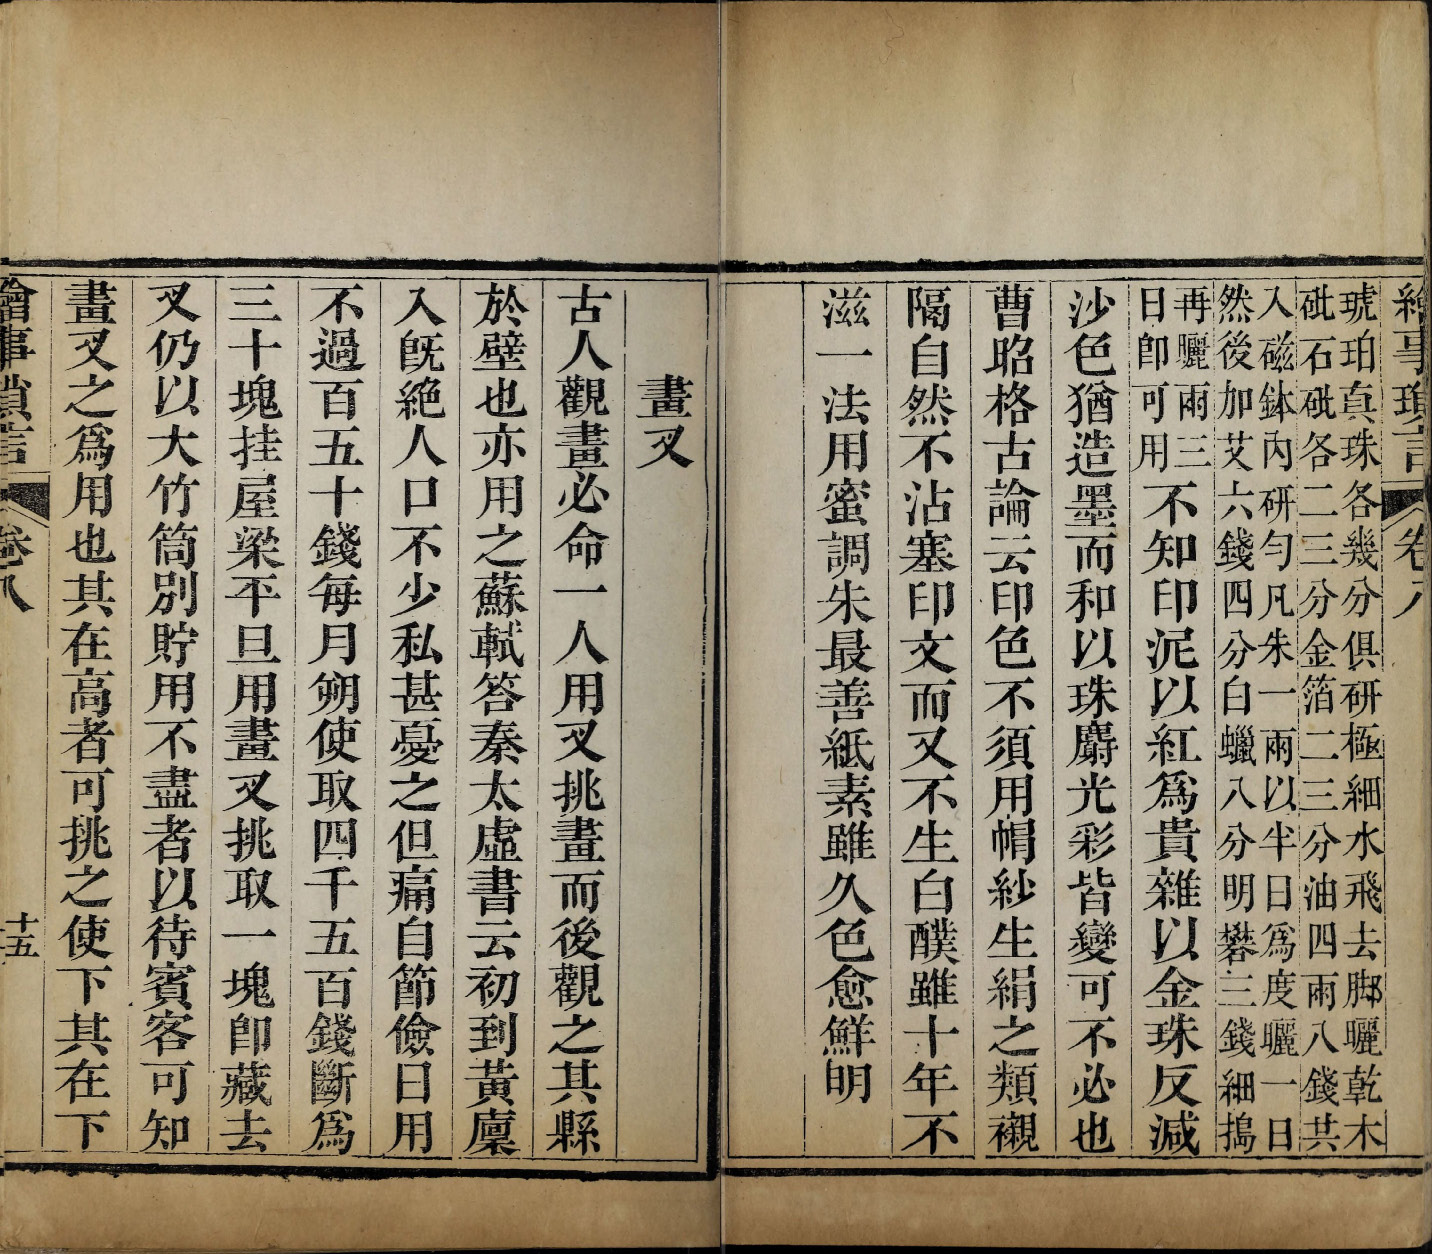 繪事瑣言 卷八
琥珀真珠各幾分俱研極細水飛去脚曬乾木
砒石砒各二三分金箔二三分油四兩八錢共
入磁鉢內研勻凡朱一兩以半日爲度曬一日
然後加艾六錢四分白蠟八分明礬三錢細搗
再曬兩三
日卽可用
不知印泥以紅爲貴雜以金珠反減
沙色猶造墨而和以珠麝光彩皆變可不必也
曹昭格古論云印色不須用帽紗生絹之類襯
隔自然不沾塞印文而又不生白醭雖十年不
滋一法用蜜調朱最善紙素雖久色愈鮮明
畫叉
古人觀畫必命一人用叉挑畫而後觀之其縣
於壁也亦用之蘇軾答秦太虛書云初到黃廩
入旣絶人口不少私甚憂之但痛自節儉日用
不過百五十錢每月朔使取四千五百錢斷爲
三十塊挂屋梁平旦用畫叉挑取一塊卽藏去
叉仍以大竹筒別貯用不盡者以待賓客可知
畫叉之爲用也其在高者可挑之使下其在下
繪事瑣言 卷八 十五